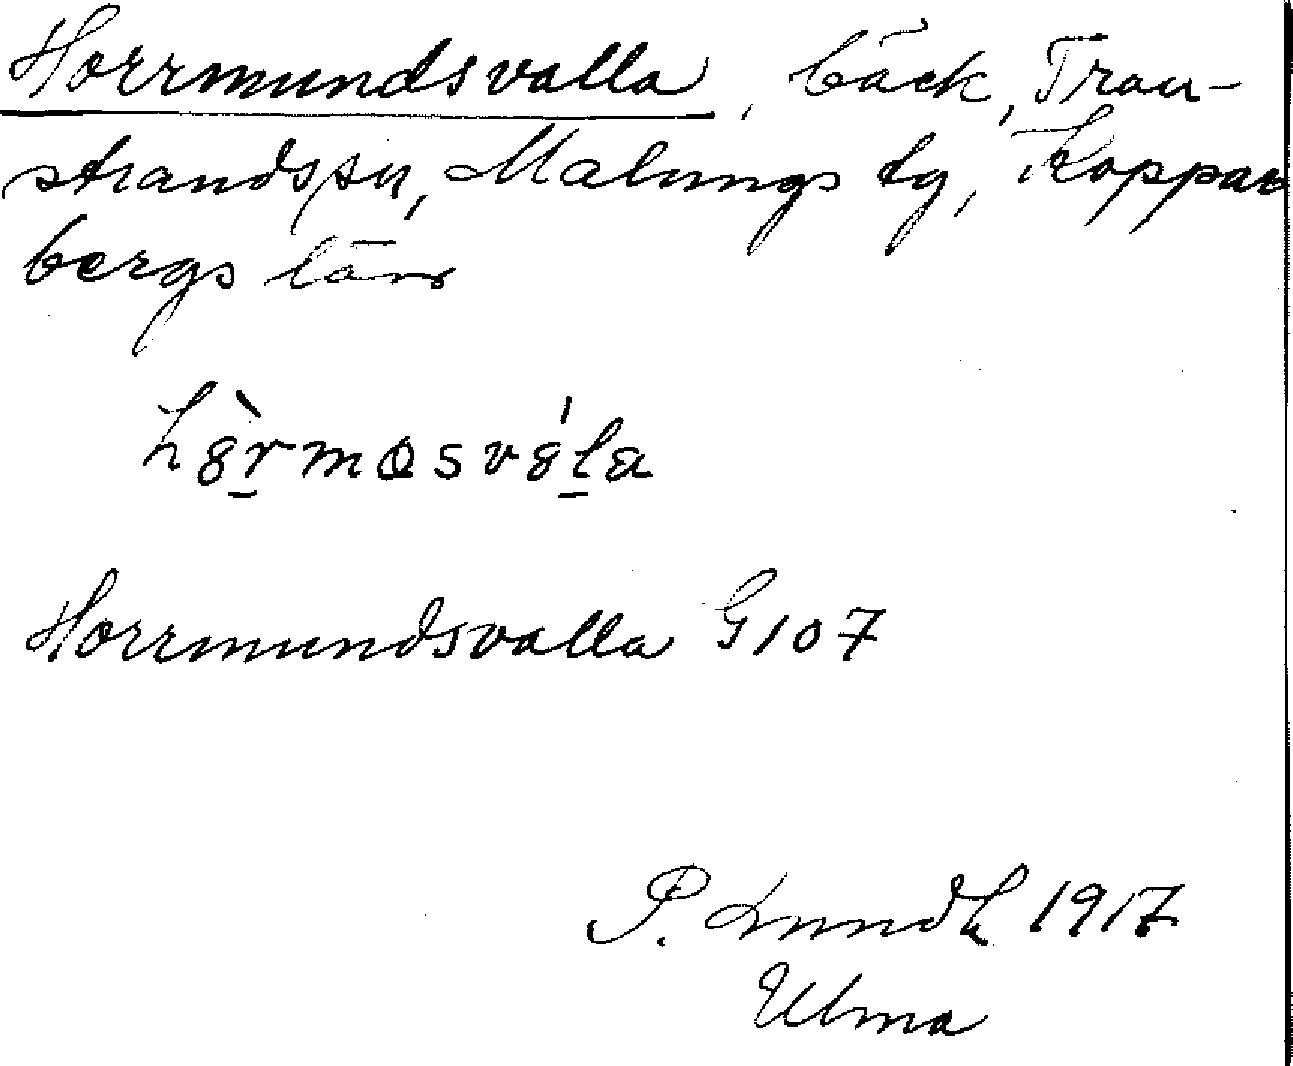 Horrmundsvalla, bäck, Tran-
strands sn, Malungs tg, Koppar
bergs län
Horrmundsvalla G107
P. Lundh 1917
Ulma